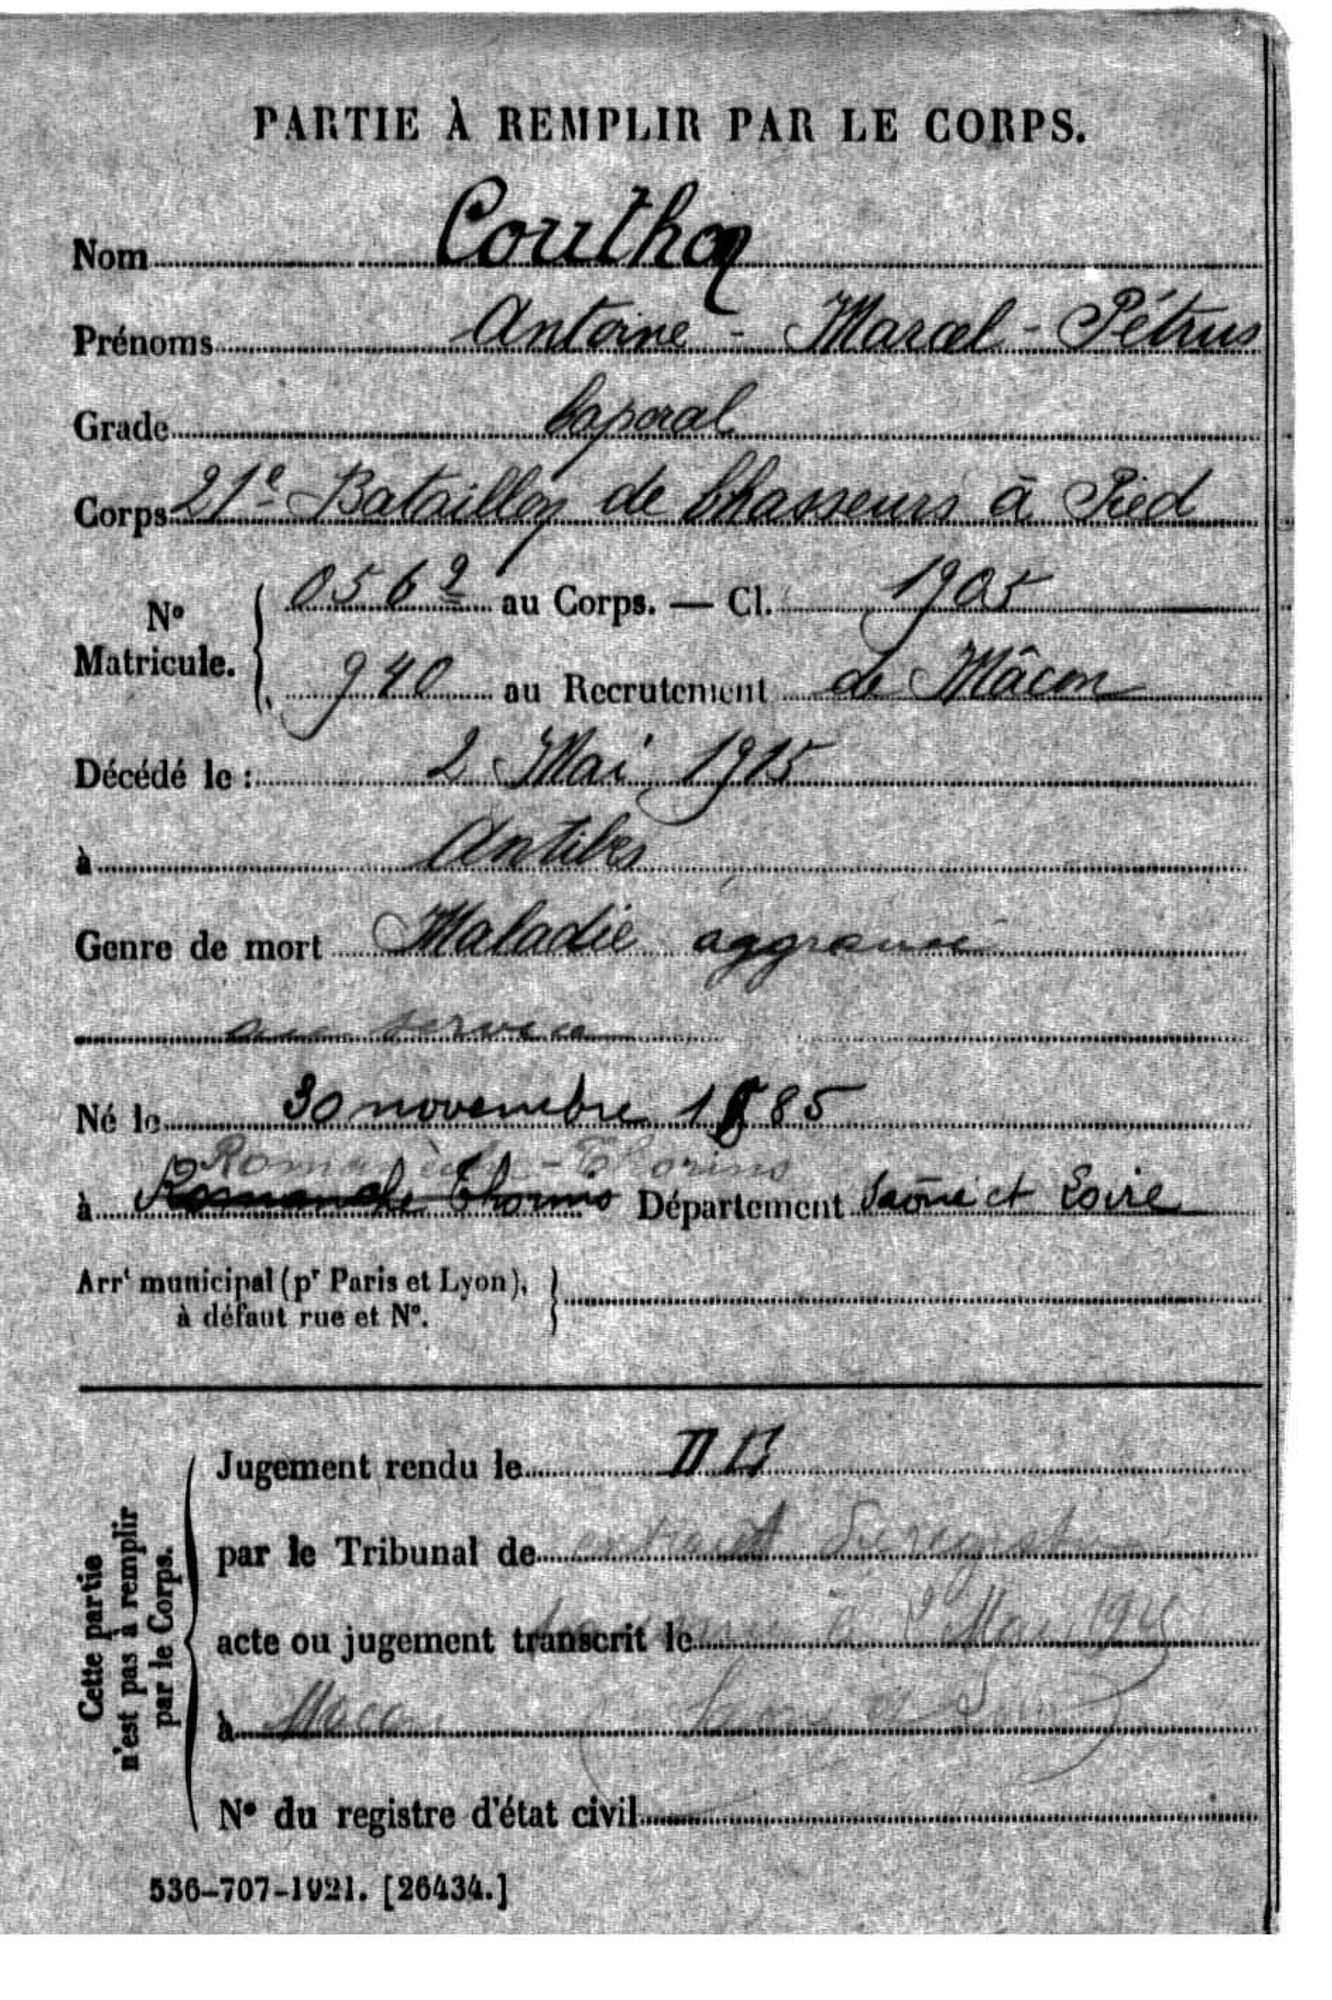 PARTIE À REMPLIR PAR LE CORPS.
Nom Couthon
Prénoms Antoine - Marcel - Pétrus
Grade Caporal
Corps 21e Bataillon de Chasseurs à Pied
No Matricule. 0569 au Corps. — Cl. 1905
940 au Recrutement de Mâcon
Décédé le : 2 Mai 1915
à Antibes
Genre de mort Maladie aggravée
au service
Né le 30 novembre 1885
Romanèche-Thorins
à Romanche Thorins Département Saône et Loire
Arrt municipal (pr Paris et Lyon),
à défaut rue et No.
Cette partie
n'est pas à remplir
par le Corps.
Jugement rendu le
par le Tribunal de extrait du registre
acte ou jugement transcrit le Mai 19
à Macon Saone et Loire
No du registre d'état civil
536-707-1921. [26434.]